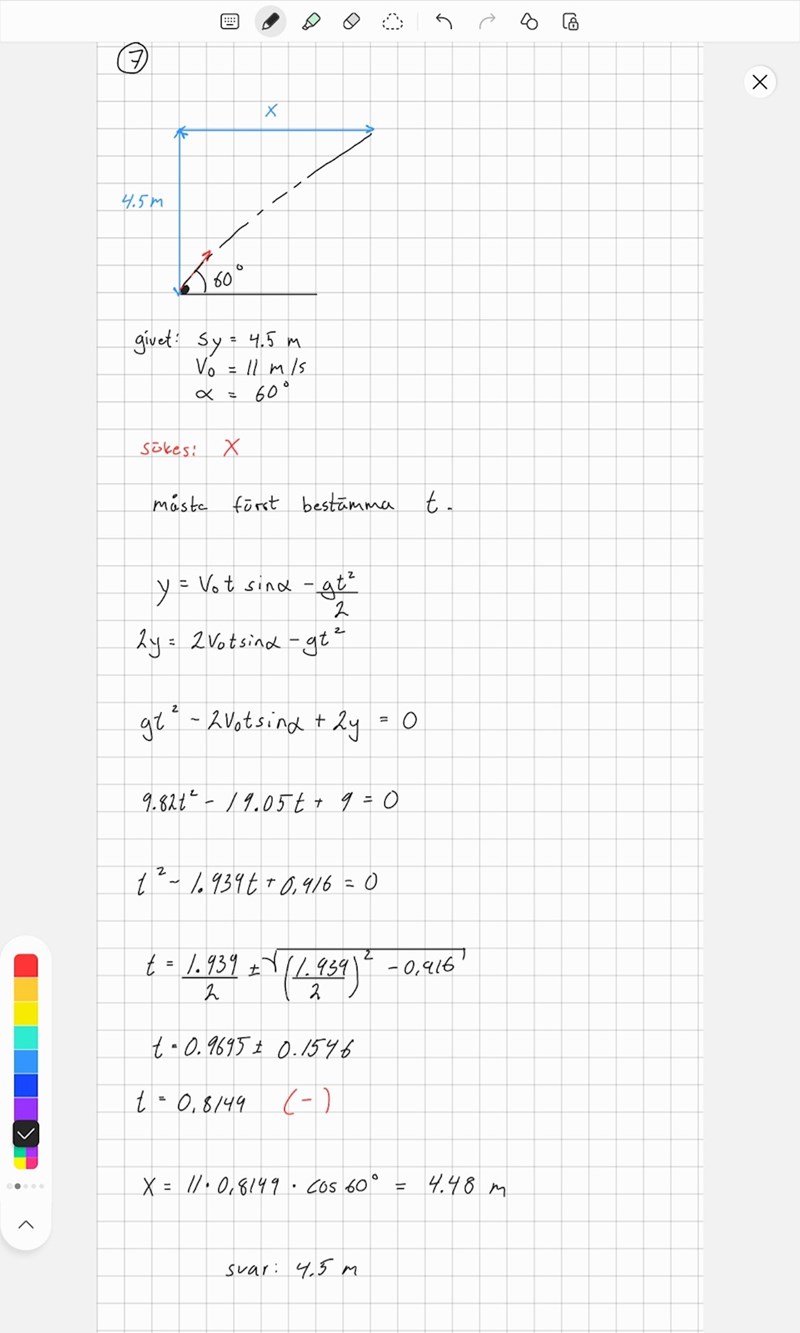 7
x
4.5 m
60°
givet: sy = 4.5 m
V₀ = 11 m/s
α = 60°
sökes: X
måste först bestämma t.
y = V₀t sinα - gt²/2
2y = 2V₀tsinα - gt²
gt² - 2V₀tsinα + 2y = 0
9.82t² - 19.05t + 9 = 0
t² - 1.939t + 0,916 = 0
t = 1.939/2 ± √((1.939/2)² - 0,916)
t = 0.9695 ± 0.1546
t = 0,8149 (-)
X = 11 · 0,8149 · cos 60° = 4.48 m
svar: 4.5 m